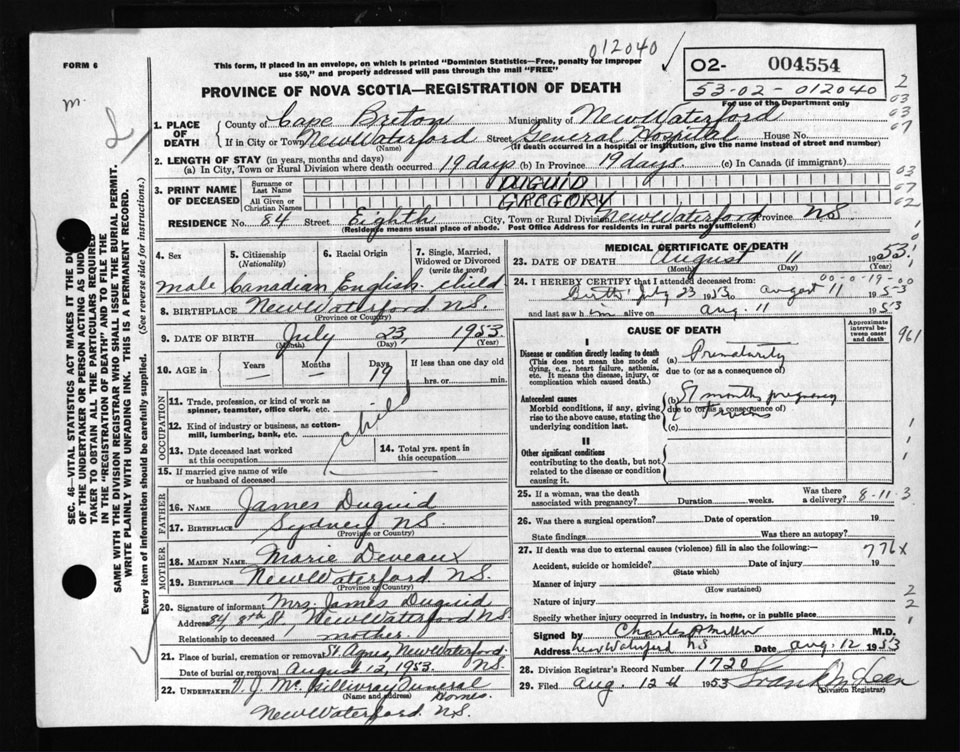 012040
FORM 6
This form, if placed in an envelope, on which is printed "Dominion Statistics—Free, penalty for improper
use $50," and properly addressed will pass through the mail "FREE"
02- 004554
53-02-012040
For use of the Department only
PROVINCE OF NOVA SCOTIA—REGISTRATION OF DEATH
m.
2
03
03
07
03
07
02
1. PLACE OF DEATH County of Cape Breton Municipality of New Waterford
If in City or Town New Waterford (Name) Street General Hospital House No.
(If death occurred in a hospital or institution, give the name instead of street and number)
2. LENGTH OF STAY (in years, months and days)
(a) In City, Town or Rural Division where death occurred 19 days (b) In Province 19 days. (c) In Canada (if immigrant)
3. PRINT NAME OF DECEASED Surname or Last Name DUGUID
All Given or Christian Names GREGORY
RESIDENCE No. 84 Street Eighth City, Town or Rural Division New Waterford Province NS
(Residence means usual place of abode. Post Office Address for residents in rural parts not sufficient)
4. Sex male
5. Citizenship (Nationality) Canadian
6. Racial Origin English
7. Single, Married, Widowed or Divorced (write the word) child
8. BIRTHPLACE New Waterford N.S.
(Province or Country)
9. DATE OF BIRTH July 23, 1953
(Month) (Day) (Year)
10. AGE in Years — Months — Days 19 If less than one day old
hrs. or min.
OCCUPATION
11. Trade, profession, or kind of work as
spinner, teamster, office clerk, etc.
12. Kind of industry or business, as cotton-
mill, lumbering, bank, etc.
child
13. Date deceased last worked
at this occupation
14. Total yrs. spent in
this occupation
15. If married give name of wife
or husband of deceased
FATHER
16. Name James Duguid
17. Birthplace Sydney N.S.
(Province or Country)
MOTHER
18. Maiden Name Marie Deveaux
19. Birthplace New Waterford N.S.
(Province or Country)
20. Signature of informant Mrs. James Duguid
Address 84, 8th St, New Waterford NS
Relationship to deceased mother.
21. Place of burial, cremation or removal St Agnes, New Waterford.
Date of burial or removal August 12, 1953. NS
22. Undertaker V. J. McGillivray Funeral
(Name and address) Homes.
New Waterford. N.S.
MEDICAL CERTIFICATE OF DEATH
23. DATE OF DEATH August 11 1953.
(Month) (Day) (Year)
24. I HEREBY CERTIFY that I attended deceased from 00-0-19-00
Birth July 23 1953 to august 11 1953
and last saw him alive on aug. 11 1953
CAUSE OF DEATH
Approximate interval between onset and death
961
I
Disease or condition directly leading to death (a) Prematurity
(This does not mean the mode of dying, e.g., heart failure, asthenia, etc. It means the disease, injury, or complication which caused death.)
due to (or as a consequence of)
Antecedent causes
Morbid conditions, if any, giving rise to the above cause, stating the underlying condition last.
(b) 8 months pregnancy
due to (or as a consequence of)
(c)
II
Other significant conditions
contributing to the death, but not related to the disease or condition causing it.
25. If a woman, was the death
associated with pregnancy? Duration weeks. Was there a delivery? 8-11-3
26. Was there a surgical operation? Date of operation 19
State findings Was there an autopsy?
27. If death was due to external causes (violence) fill in also the following:— 776x
Accident, suicide or homicide? Date of injury 19
(State which)
Manner of injury
(How sustained)
Nature of injury
Specify whether injury occurred in industry, in home, or in public place
Signed by Charles Miller M.D.
Address New Waterford NS Date aug. 12 1953
28. Division Registrar's Record Number 1720
29. Filed Aug. 12th 1953 Frank McLean
(Division Registrar)
SEC. 46—VITAL STATISTICS ACT MAKES IT THE DU
OF THE UNDERTAKER OR PERSON ACTING AS UND
TAKER TO OBTAIN ALL THE PARTICULARS REQUIRED
IN THE "REGISTRATION OF DEATH" AND TO FILE THE
SAME WITH THE DIVISION REGISTRAR WHO SHALL ISSUE THE BURIAL PERMIT.
WRITE PLAINLY WITH UNFADING INK. THIS IS A PERMANENT RECORD.
Every item of information should be carefully supplied. (See reverse side for instructions.)